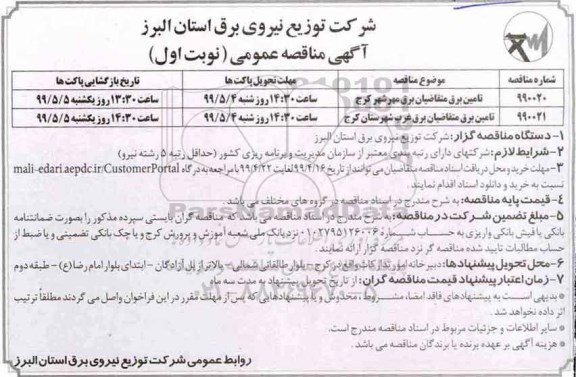 شرکت توزیع نیروی برق استان البرز
آگهی مناقصه عمومی (نوبت اول)
شماره مناقصه موضوع مناقصه مهلت تحویل پاکت ها تاریخ بازگشایی پاکت ها
۹۹۰۰۲۰ تامین برق متقاضیان برق مهرشهر کرج ساعت ۱۴:۳۰ روز شنبه ۹۹/۵/۴ ساعت ۱۳:۳۰ روز یکشنبه ۹۹/۵/۵
۹۹۰۰۲۱ تامین برق متقاضیان برق غرب شهرستان کرج ساعت ۱۴:۳۰ روز شنبه ۹۹/۵/۴ ساعت ۱۴:۳۰ روز یکشنبه ۹۹/۵/۵
۱- دستگاه مناقصه گزار: شرکت توزیع نیروی برق استان البرز
۲- شرایط لازم: شرکتهای دارای رتبه بندی معتبر از سازمان مدیریت و برنامه ریزی کشور (حداقل رتبه ۵ رشته نیرو)
۳- مهلت خرید و محل دریافت اسناد مناقصه متقاضیان می توانند از تاریخ ۹۹/۴/۱۶ لغایت ۹۹/۴/۲۲ با مراجعه به درگاه mali-edari.aepdc.ir/CustomerPortal
نسبت به خرید و دانلود اسناد اقدام نمایند.
۴- قیمت پایه مناقصه: به شرح مندرج در اسناد مناقصه در گروه های مختلف می باشد.
۵- مبلغ تضمین شرکت در مناقصه: به شرح مندرج در اسناد مناقصه می باشد که مناقصه گران بایستی سپرده مذکور را بصورت ضمانتنامه
بانکی یا فیش بانکی واریزی به حساب شماره ۰۱۰۲۷۹۵۱۲۶۰۰۶ نزد بانک ملی شعبه آموزش و پرورش کرج و یا چک بانکی تضمینی و یا ضبط از
حساب مطالبات تایید شده مناقصه گر نزد مناقصه گزار ارائه نمایند.
۶- محل تحویل پیشنهادها: دبیرخانه امور تدارکات واقع در کرج - بلوار طالقانی شمالی - بالاتر از پل آزادگان - ابتدای بلوار امام رضا (ع) - طبقه دوم
۷- زمان اعتبار پیشنهاد قیمت مناقصه گران: از تاریخ تحویل پیشنهاد به مدت سه ماه
* بدیهی است به پیشنهادهای فاقد امضاء، مشروط، مخدوش و یا پیشنهادهایی که پس از مهلت مقرر در این فراخوان واصل می گردند مطلقا ترتیب
اثر داده نخواهد شد.
* سایر اطلاعات و جزئیات مربوط در اسناد مناقصه مندرج است.
* هزینه آگهی بر عهده برنده یا برندگان مناقصه می باشد.
روابط عمومی شرکت توزیع نیروی برق استان البرز